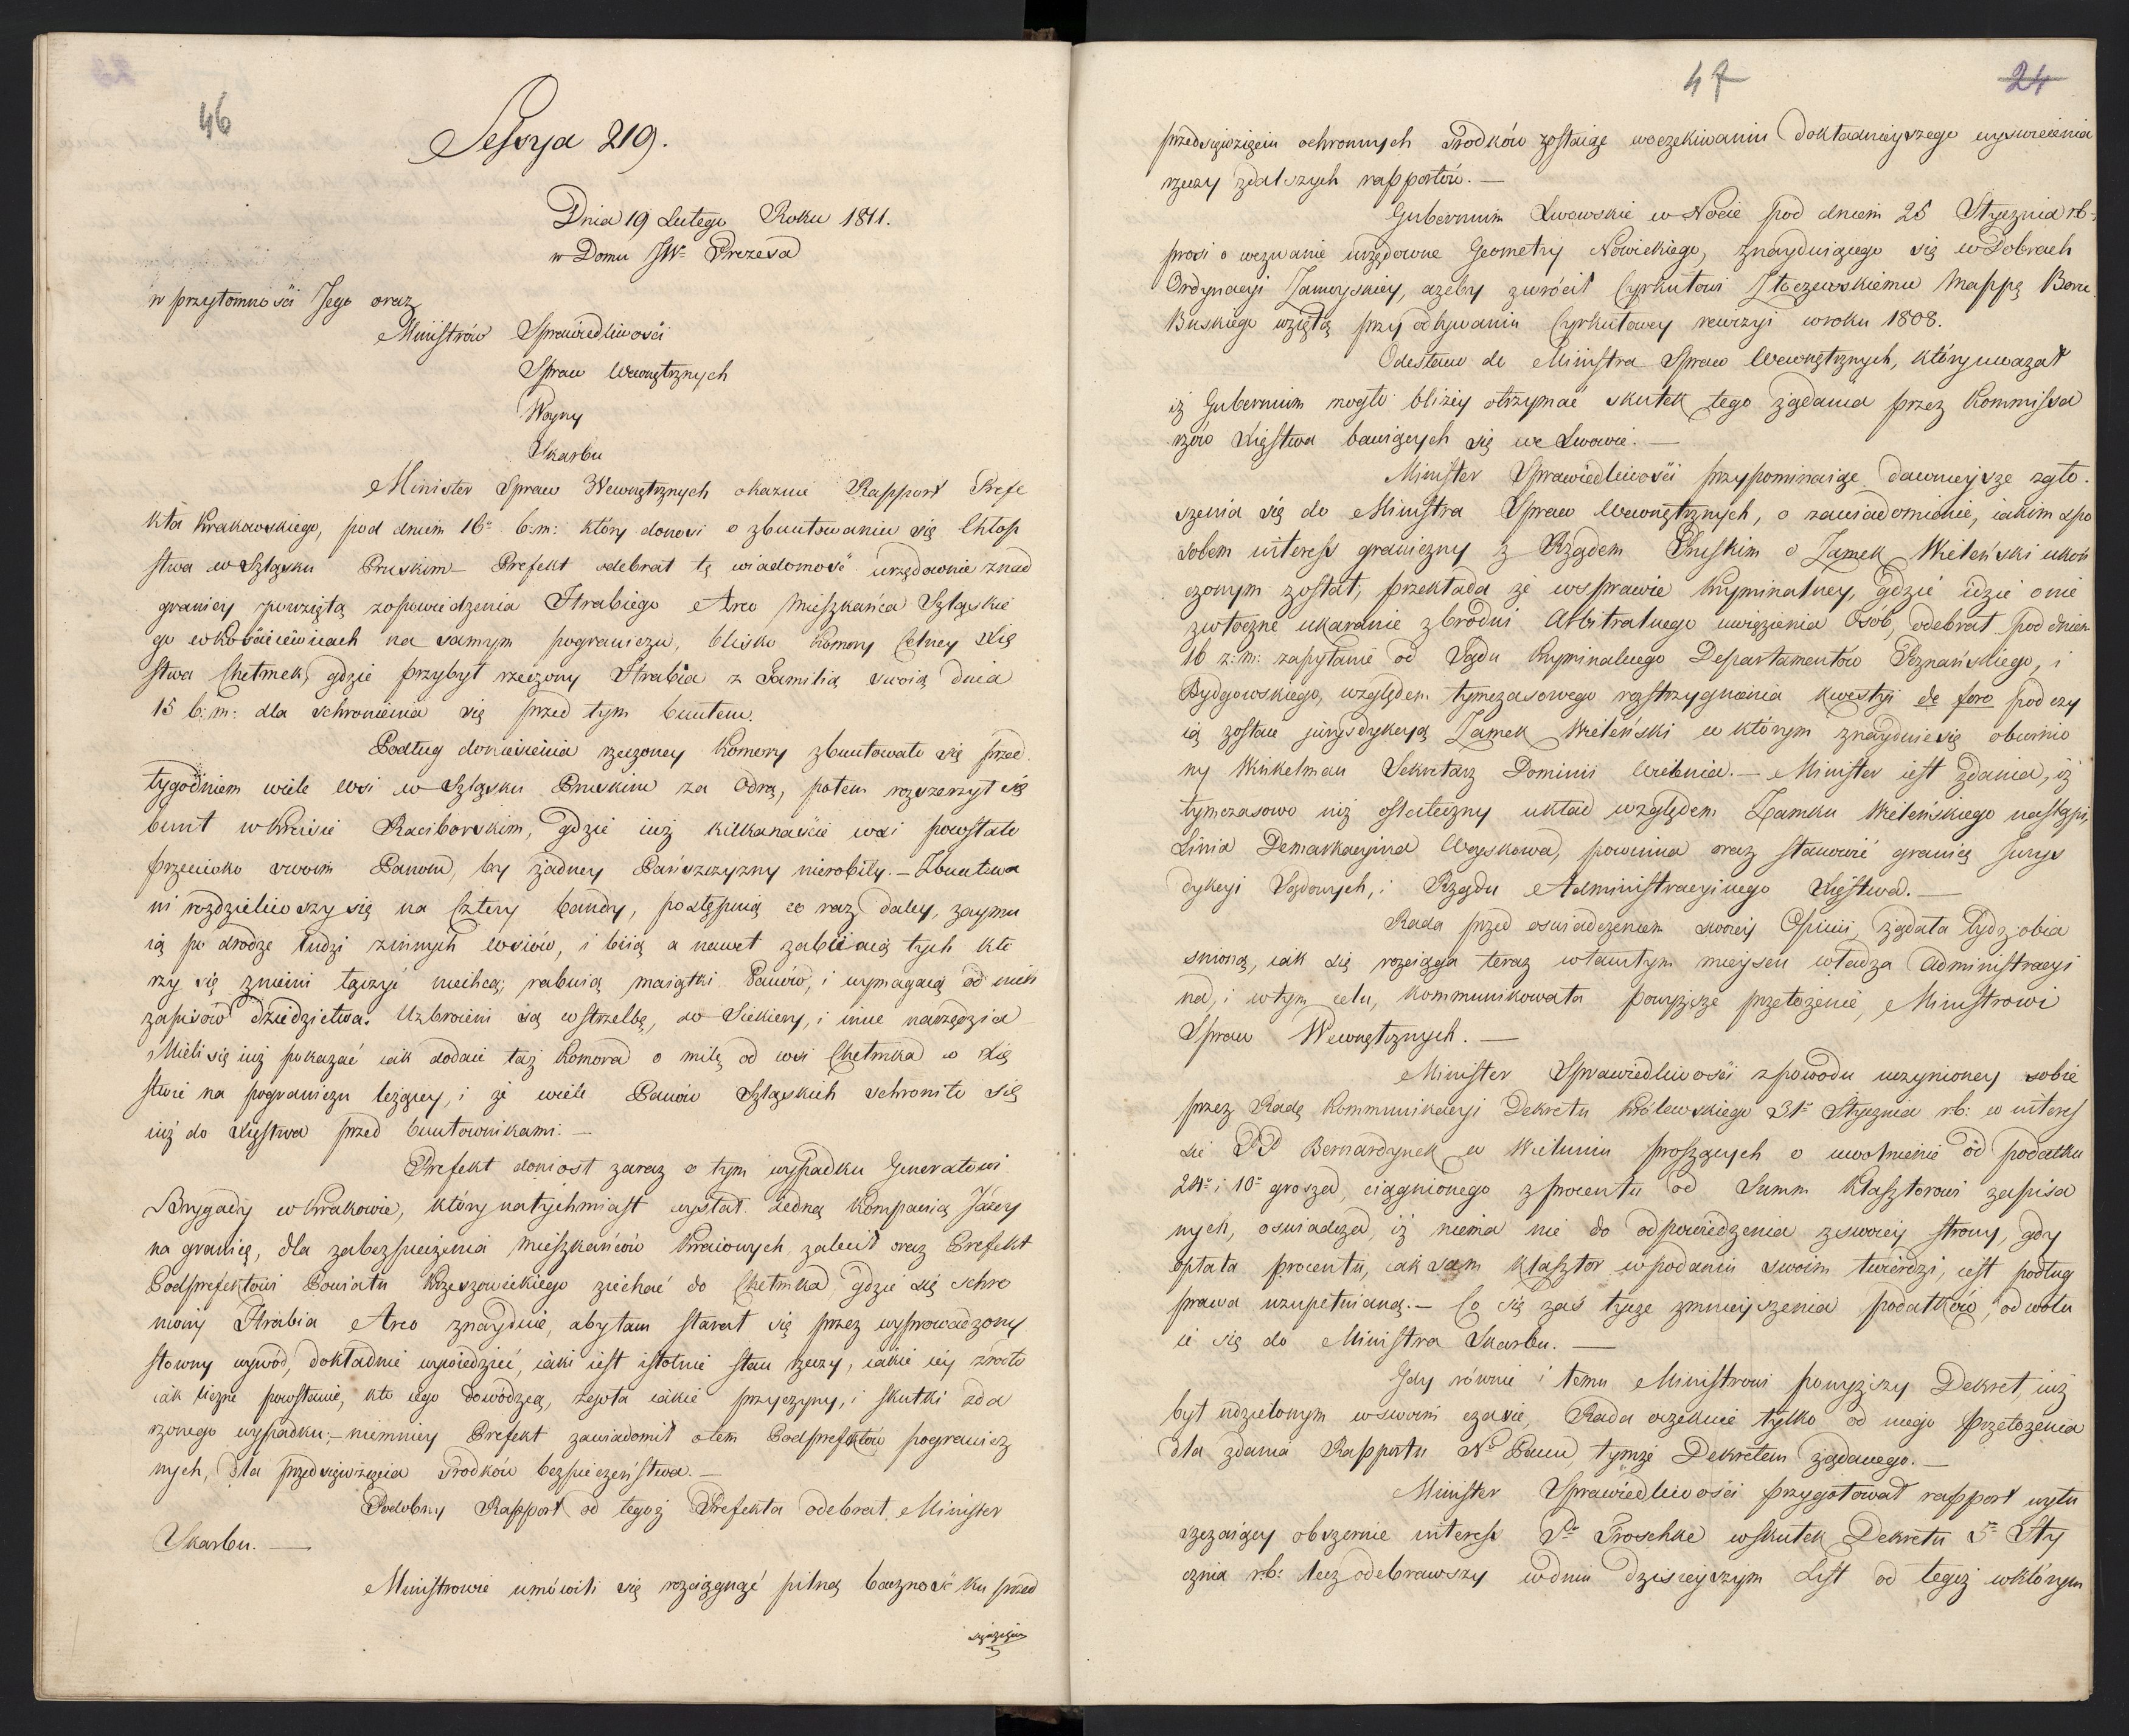 46
Sessya 219.
Dnia 19 Lutego Roku 1811.
w Domu JWo Prezesa
w przytomności Jego oraz
Ministrów Sprawiedliwości
Spraw Wewnętrznych
Woyny
Skarbu
Minister Spraw Wewnętrznych okazuie Rapport Prefe
kta Krakowskiego, pod dniem 16o b:m: który donosi o zbuntowaniu się Chłop
stwa w Szląsku Pruskim – Prefekt odebrał tę wiadomość urzędownie znad
granicy powziętą zopowiedzenia Hrabiego Arco Mieszkańca Szląskie
go w na samym pograniczu, blisko Komory Celney Xię
stwa Chełmek, gdzie przybył rzeczony Hrabia z Familią swoią dnia
15 b:m: dla schronienia się przed tym buntem.
Podług doniesienia rzeczoney Komory zbuntowało się przed
tygodniem wiele wsi w Szląsku Pruskim za Odrą, potem rozszerzył się
bunt w Kreisie Raciborskim, gdzie iuż kilkanaście wsi powstało
przeciwko swoim Panom, by żadney Pańszczyzny nierobiły. – Zbuntowa
ni rozdzieliwszy się na Cztery bandy, postępuią co raz daley, zaymu
ią po drodze ludzi zinnych wsiów, i biią a nawet zabiiaią tych któ
rzy się zniemi łączyć niechcą; rabuią maiątki Panów, i wymagaią od nich
zapisów dziedzictwa. Uzbroieni są wstrzelbę, w Siekiery, i inne narzędzia
Mieli się iuż pokazać iak dodaie taż Komora o milę od wsi Chełmka w Xię
stwie na pograniczu leżącey, i że wiele Panów Szląskich schroniło się
iuż do Xięstwa przed buntownikami. —
Prefekt doniosł zaraz o tym wypadku Generałowi
Brygady w Krakowie, który natychmiast wysłał iedną kompanią Jazdy
na granicę, dla zabezpieczenia Mieszkańców kraiowych, zalecił oraz Prefekt
Podprefektowi Powiatu Krzeszowickiego ziechać do Chełmka gdzie się schro
niony Hrabia Arco znayduie, abytam starał się przez wyprowadzony
słowny wywód, dokładnie wywiedzieć, iaki iest istotnie stan rzeczy, iakie iey zrodło
iak liczne powstanie, kto iego dowodzcą, zgoła iakie przyczyny, i skutki zda
rzonego wypadku; – niemniey Prefekt zawiadomił otem Podprefektów pogranicz
nych, dla przedsięwzięcia srodków bezpieczeństwa. —
Podobny Rapport od tegoż Prefekta odebrał Minister
Skarbu. —
Ministrowie umówili się rozciągnąć pilną baczność ku przed
sięwzięciu
47
24
przedsięwzięciu ochronnych srodków zostaiąc woczekiwaniu dokładnieyszego wyswiecenia
rzeczy zdalszych rapportów. —
Gubernium Lwowskie w Nocie pod dniem 25 Stycznia rb.
prosi o wezwanie urzędowne Geometry Nowickiego, znayduiącego się w Dobrach
Ordynacyi Zamoyskiey, ażeby zwrócił Cyrkułowi Złoczowskiemu Mappę
Buskiego wziętą przy odbywaniu Cyrkułowey rewizyi wroku 1808.
Odesłano do Ministra Spraw Wewnętrznych, któryuważał
iż Gubernium mogło bliżey otrzymać skutek tego żądania przez Kommissa
rzów Xięstwa bawiących się we Lwowie. —
Minister Sprawiedliwości przypominaiąc dawnieysze zgło
szenia się do Ministra Spraw Wewnętrznych, o zawiadomienie, iakim spo
sobem interess graniczny z Rządem Pruskim o Zamek Wieleński ukoń
czonym został; przekłada że wsprawie kryminalney, gdzie idzie o nie
zwłoczne ukaranie zbrodni Arbitralnego uwięzienia Osób, odebrał pod dniem
16 z:m: zapytanie od Sądu kryminalnego Departamentów Poznańskiego, i
Bydgowskiego, względem tymczasowego rozstrzygnienia kwestyi de foro pod czy
ią zostaie jurysdykcyą Zamek Wieleński w którym znayduiesię obwinio
ny Winkelman Sekretarz Dominii Wielenia. – Minister iest zdania, iż
tymczasowo niż ostateczny układ względem Zamku Wieleńskiego nastąpi,
Linia Demarkacyina Woyskowa, powinna oraz stanowić granicę Jurys
dykcyi Sądowych, i Rządu Administracyinego Xięstwa. —
Rada przed oswiadczeniem swoiey Opinii, żądała bydz obia
snioną, iak się rozciąga teraz wtamtym mieyscu władza Administracyi
na, i wtym celu, kommunikowała powyższe przełożenie, Ministrowi
Spraw Wewnętrznych. —
Minister Sprawiedliwości zpowodu uczynioney sobie
przez Radę Kommunikacyi Dekretu Królewskiego 31o Stycznia rb: w interes
sie PP Bernardynek w Wieluniu proszących o uwolnienie od podatku
24o i 10o grosza, ciągnionego zprocentu od Summ Klasztorowi zapisa
nych, oswiadcza, iż niema nic do odpowiedzenia zswoiey strony, gdy
opłata procentu, iak sam Klasztor wpodaniu swoim twierdzi, iest podług
prawa uzupełnianą. – Co się zaś tycze zmnieyszenia podatków, odwołu
ie się do Ministra Skarbu. —
Gdy równie i temu Ministrowi powyższy Dekret, iuż
był udzielonym wswoim czasie, Rada oczekuie tylko od niego przełożenia
dla zdania Rapportu No Panu, tymże Dekretem żądanego. —
Minister Sprawiedliwości przygotował rapport wytu
szczaiący obszernie interess Po Troschke wskutek Dekretu 5o Sty
cznia r.b: lecz odebrawszy wdniu dzisieyszym List od tegoż wktórym